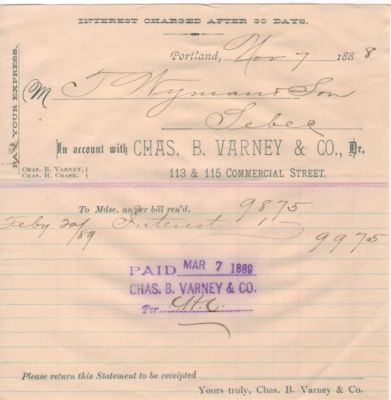 INTEREST CHARGED AFTER 30 DAYS.
PAY YOUR EXPRESS.
Portland, Nov 7 1888
M T Wyman & Son
Sebec
In account with CHAS. B. VARNEY & CO., Dr.
CHAS. B. VARNEY,
CHAS. H. CHASE.
113 & 115 COMMERCIAL STREET.
To Mdse. as per bill ren'd. 98 75
Feby 20/89 Interest 1
99 75
PAID MAR 7 1889
CHAS. B. VARNEY & CO.
Per
Please return this Statement to be receipted
Yours truly, Chas. B. Varney & Co.